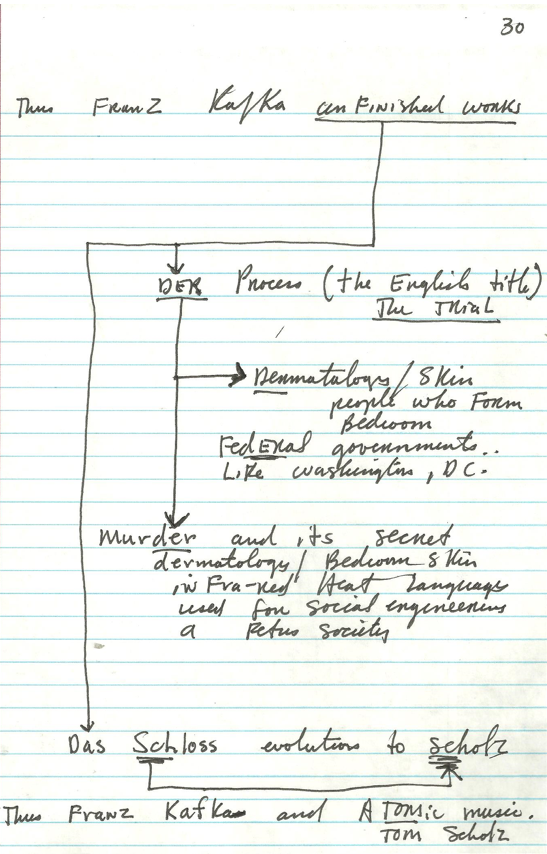 30
Thus Franz Kafka unFinished works
DER Process (the English title)
The Trial
Dermatology/Skin
people who Form
Bedroom
FedERal governments..
Like Washington, D.C.
Murder and its secret
dermatology/Bedroom Skin
inFra-red Heat Language
used for social engineering
a Fetus Society
Das Schloss evolution to Scholz
Thus Franz Kafka and ATONSic music.
TOM Scholz